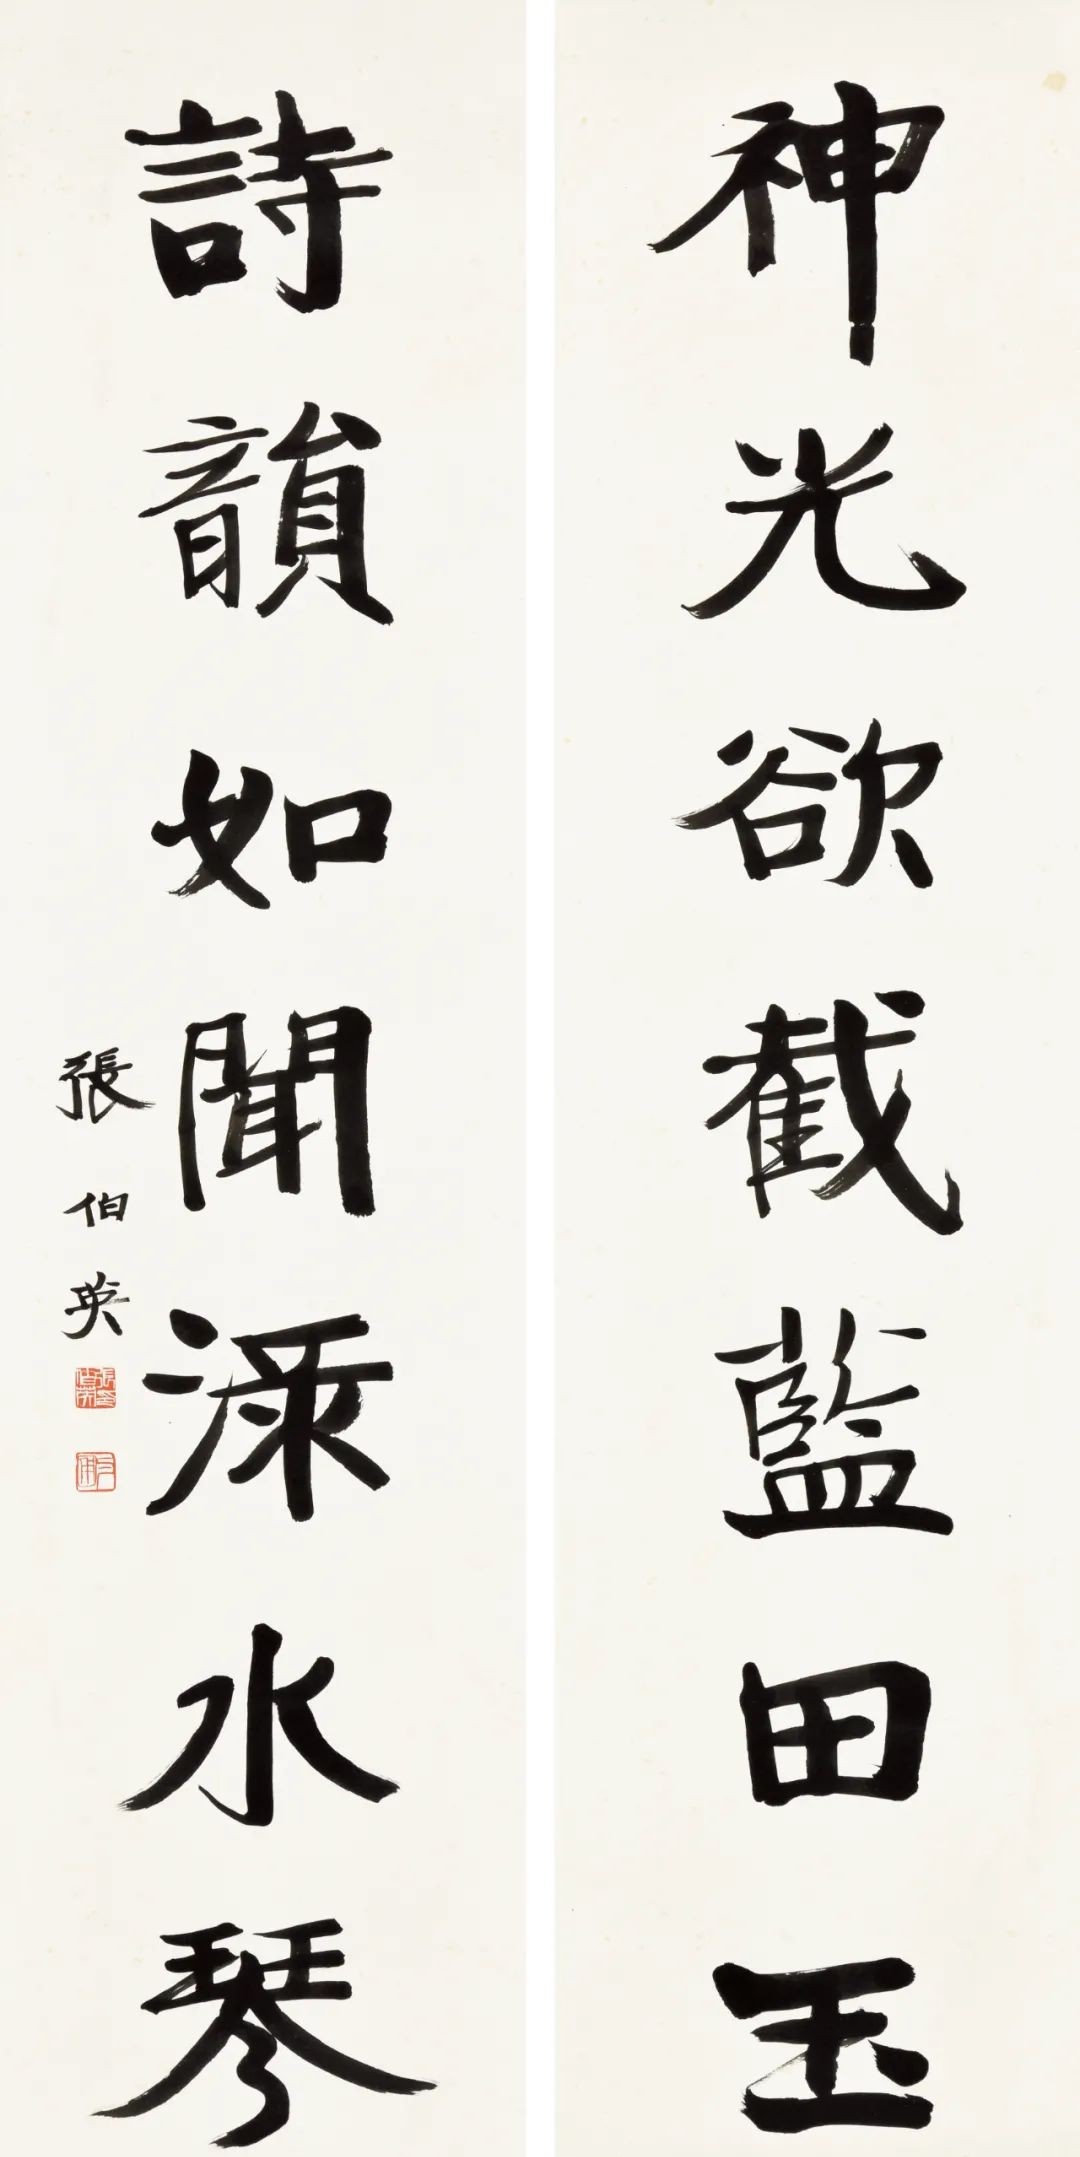 神光欲截藍田玉
詩韻如聞渌水琴
張伯英